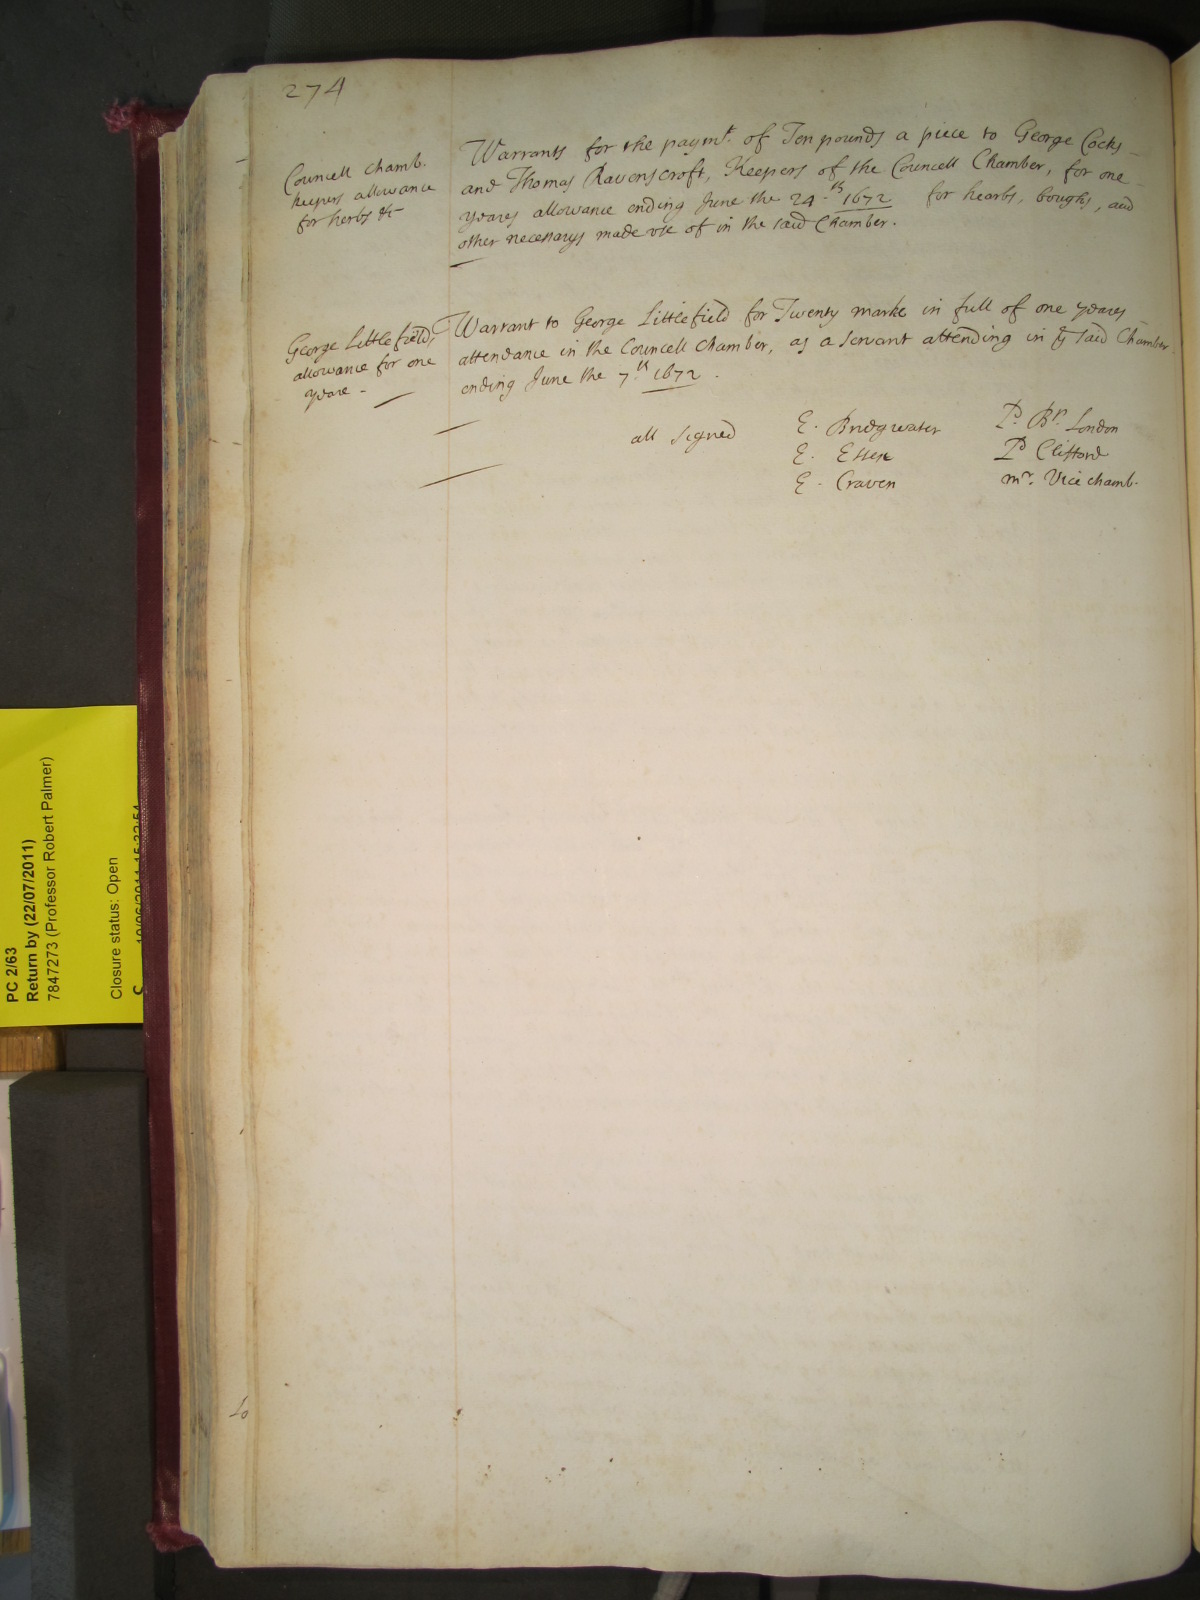 274
Councell chamb.
keepers allowance
for herbs &c
Warrants for the paymt. of Ten pounds a piece to George Cocks
and Thomas Ravenscroft, Keepers of the Councell Chamber, for one
yeares allowance ending June the 24th 1672 for hearbs, boughs, and
other necessarys made use of in the said Chamber.
George Littlefield,
allowance for one
yeare -
Warrant to George Littlefield for Twenty marke in full of one yeares
attendance in the Councell Chamber, as a servant attending in ye said Chamber
ending June the 7th 1672.
all signed
E. Bridgwater
E. Essex
E. Craven
Ld. Bp. London
Ld Clifford
mr. Vice chamb.
PC 2/63
Return by (22/07/2011)
7847273 (Professor Robert Palmer)
Closure status: Open